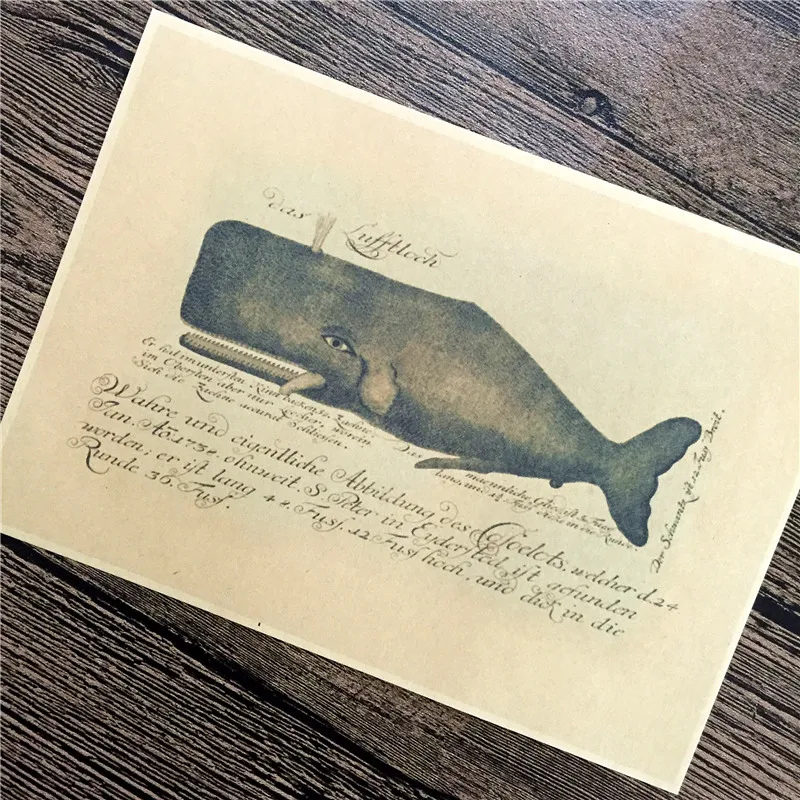 das Lufftloch
Er hat im untersten Kinnbacken Zaehne
im Obersten aber nur Löcher, worein
Sich die Zaehne accurat Schliesen.
Das maennliche Glied ist
lang, und in der Runde.
Der Schwantz ist 12 Fus Breit.
Wahre und eigentliche Abbildung des Cachelots, welcher d. 24
Jan. Ao. 1738. ohnweit S. Peter in Eydersted, ist gefunden
worden; er ist lang 44. Fusf. 12 Fusf hoch, und dick in die
Runde. 36. Fusf.